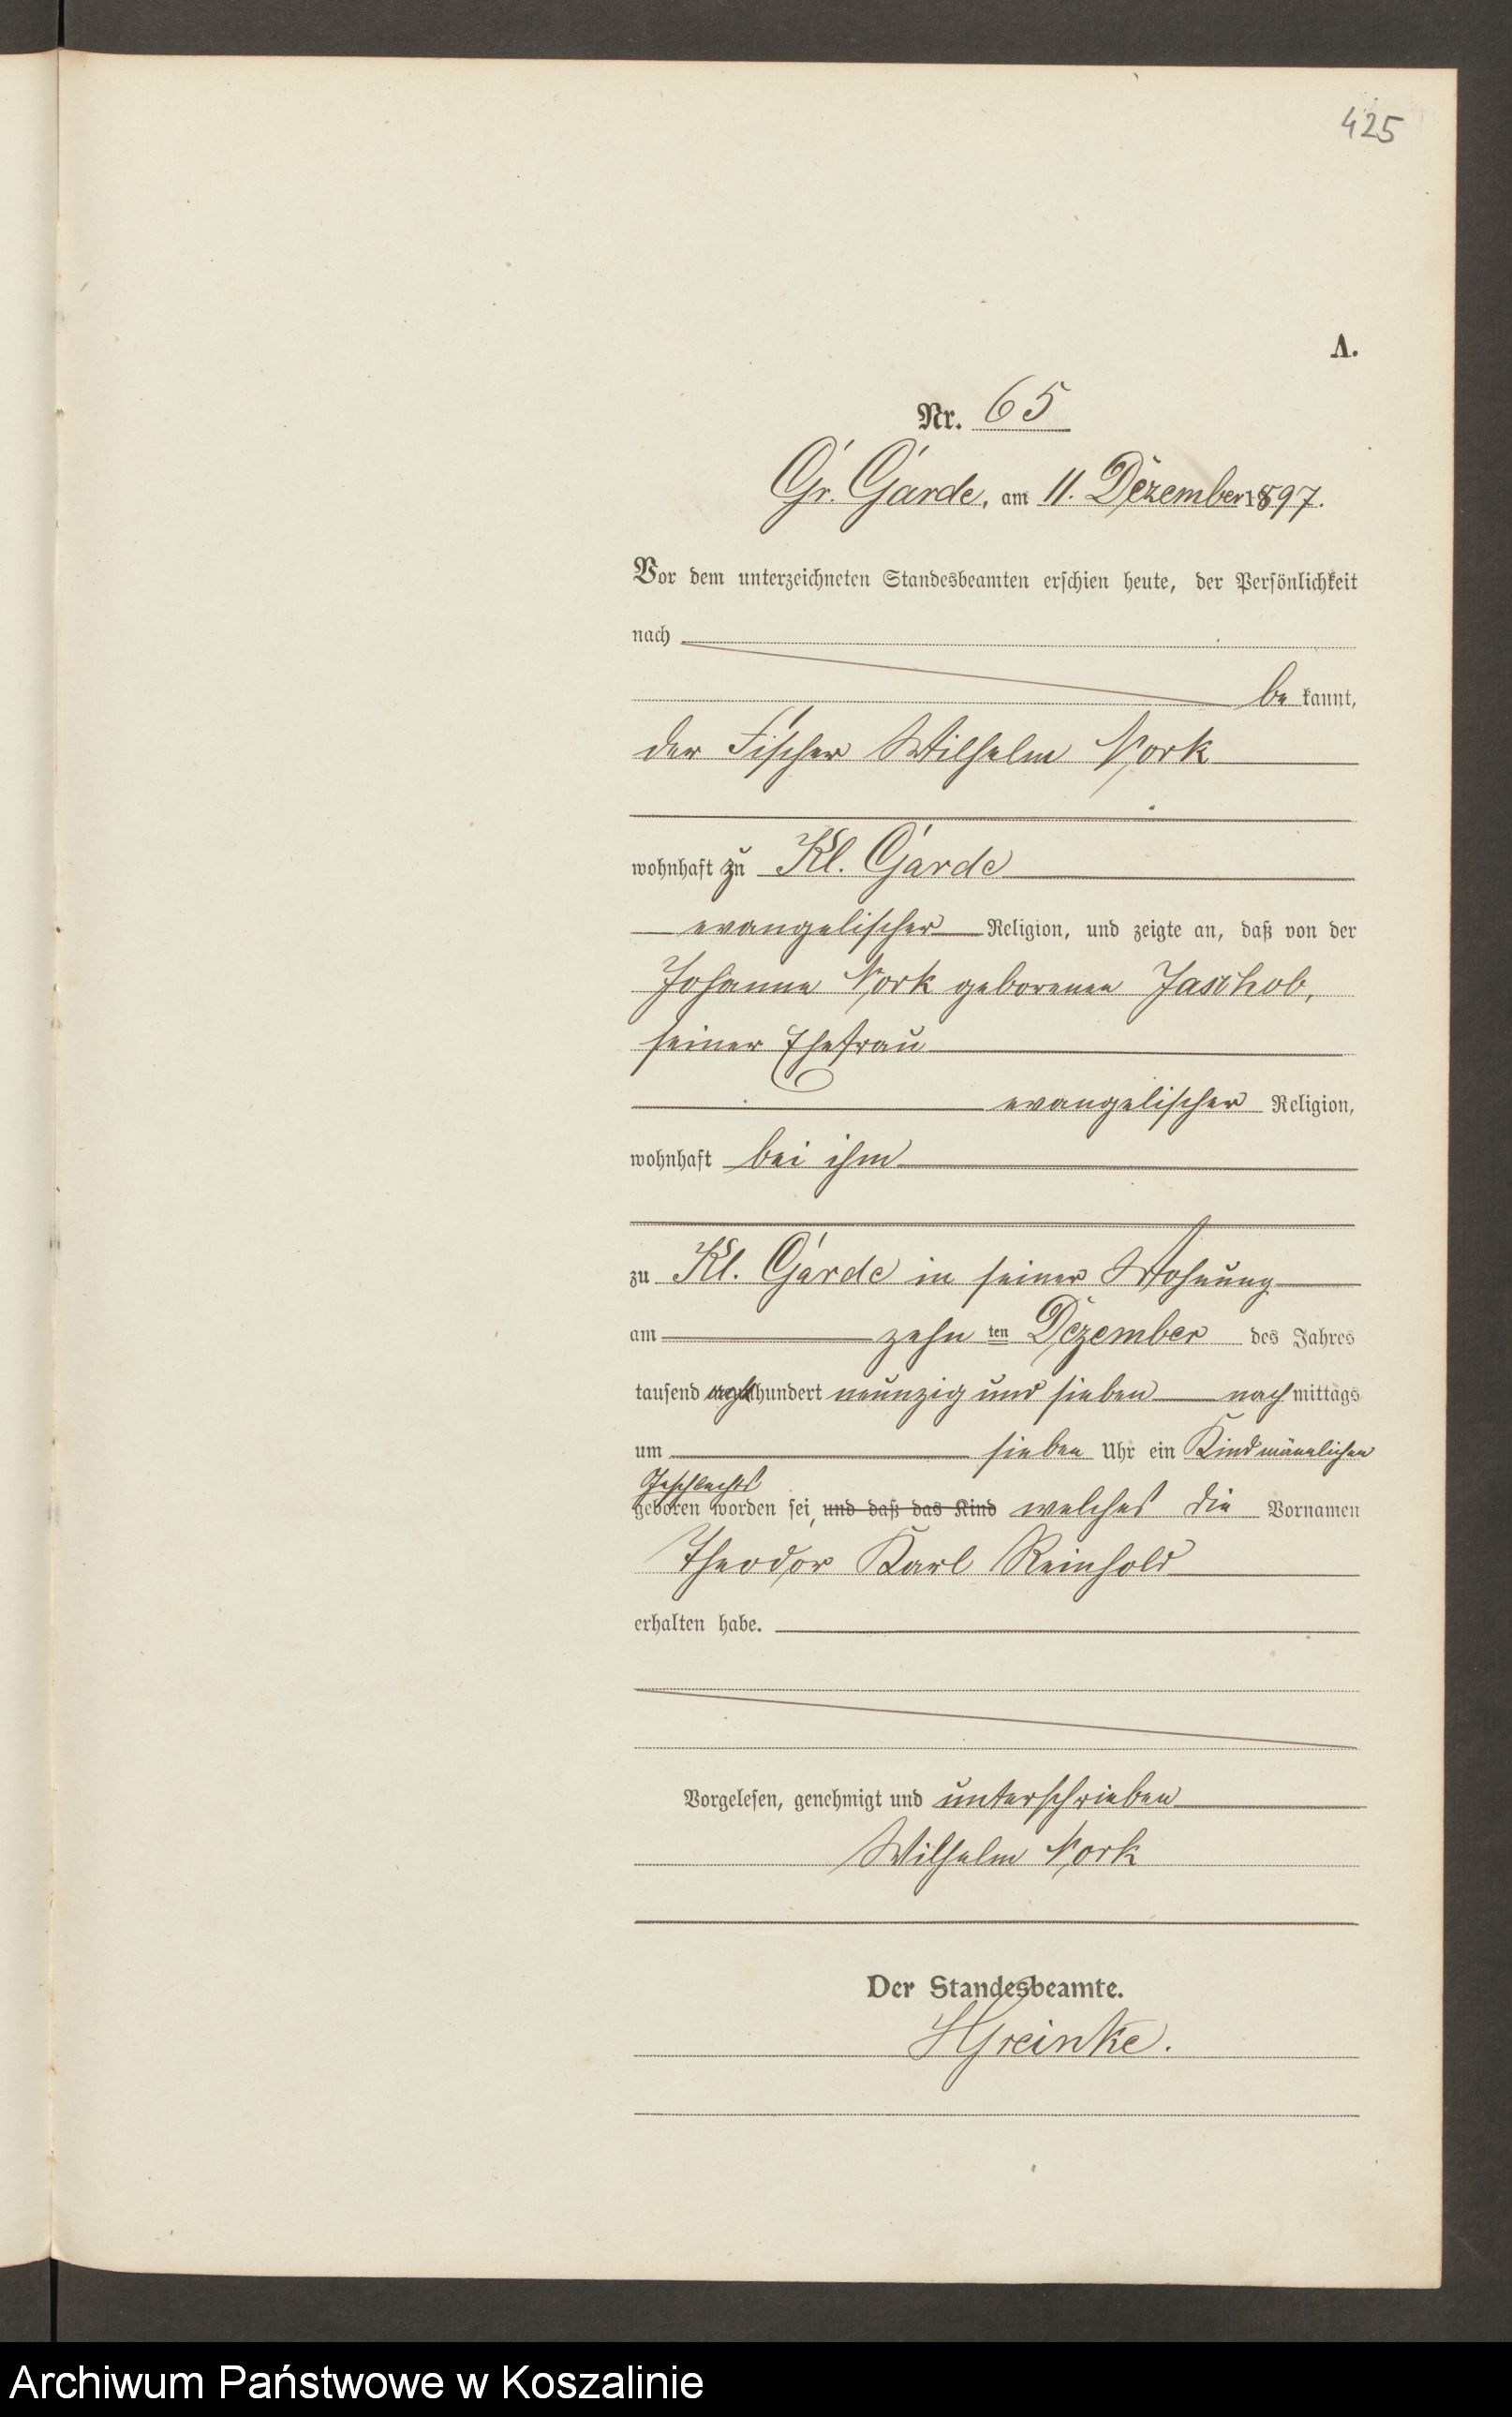 425
A.
Nr. 65
Gr. Garde, am 11. Dezember 1897.
Vor dem unterzeichneten Standesbeamten erschien heute, der Persönlichkeit
nach
be kannt,
der Fischer Wilhelm York
wohnhaft zu Kl. Garde
evangelischer Religion, und zeigte an, daß von der
Johanne York geborenen Jaschob,
seiner Ehefrau
evangelischer Religion,
wohnhaft bei ihm
zu Kl. Garde in seiner Wohnung
am zehn ten Dezember des Jahres
tausend achthundert neunzig und sieben nach mittags
um sieben Uhr ein Kind männlichen
Geschlechts
geboren worden sei, und daß das Kind welches die Vornamen
Theodor Karl Reinhold
erhalten habe.
Vorgelesen, genehmigt und unterschrieben
Wilhelm York
Der Standesbeamte.
HGreinke.
Archiwum Państwowe w Koszalinie